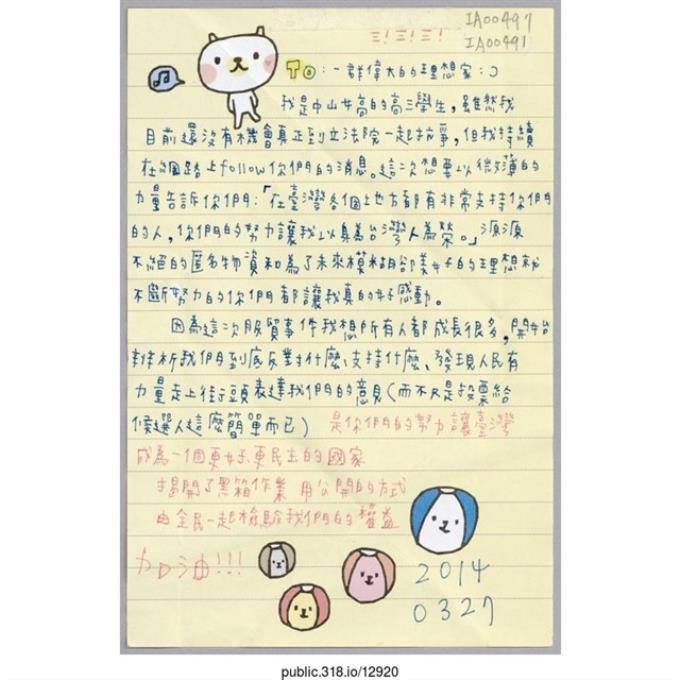 IA00497
三!三!三!
IA00491
To:一群偉大的理想家:)
我是中山女高的高三學生,雖然我
目前還沒有機會真正到立法院一起抗爭,但我持續
在網路上follow你們的消息。這次想要以微薄的
力量告訴你們:「在臺灣各個地方都有非常支持你們
的人,你們的努力讓我以身為台灣人為榮。」源源
不絕的匿名物資和為了未來模糊卻美好的理想就
不斷努力的你們都讓我真的好感動。
因為這次服貿事件我想所有人都成長很多,開始
辨析我們到底反對什麼、支持什麼、發現人民有
力量走上街頭表達我們的意見(而不只是投票給
候選人這麼簡單而已) 是你們的努力讓臺灣
成為一個更好、更民主的國家
揭開了黑箱作業 用公開的方式
由全民一起檢驗我們的權益
加油!!!
2014
0327
public.318.io/12920